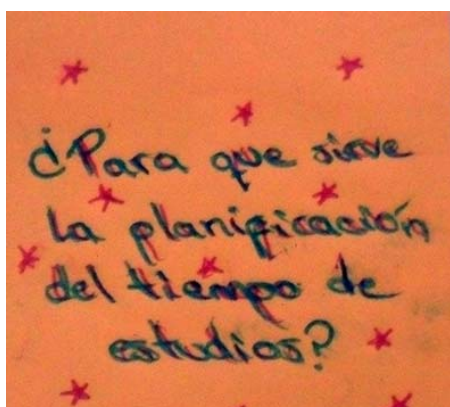 ¿Para que sirve
la planificación
del tiempo de
estudios?